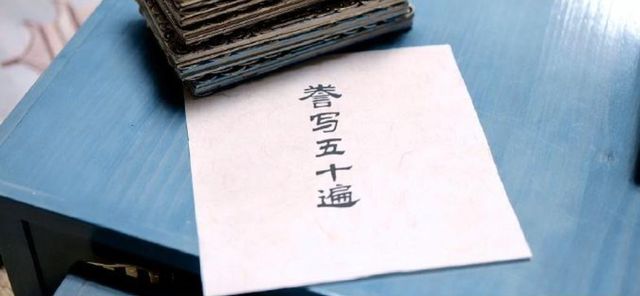 誊写五十遍